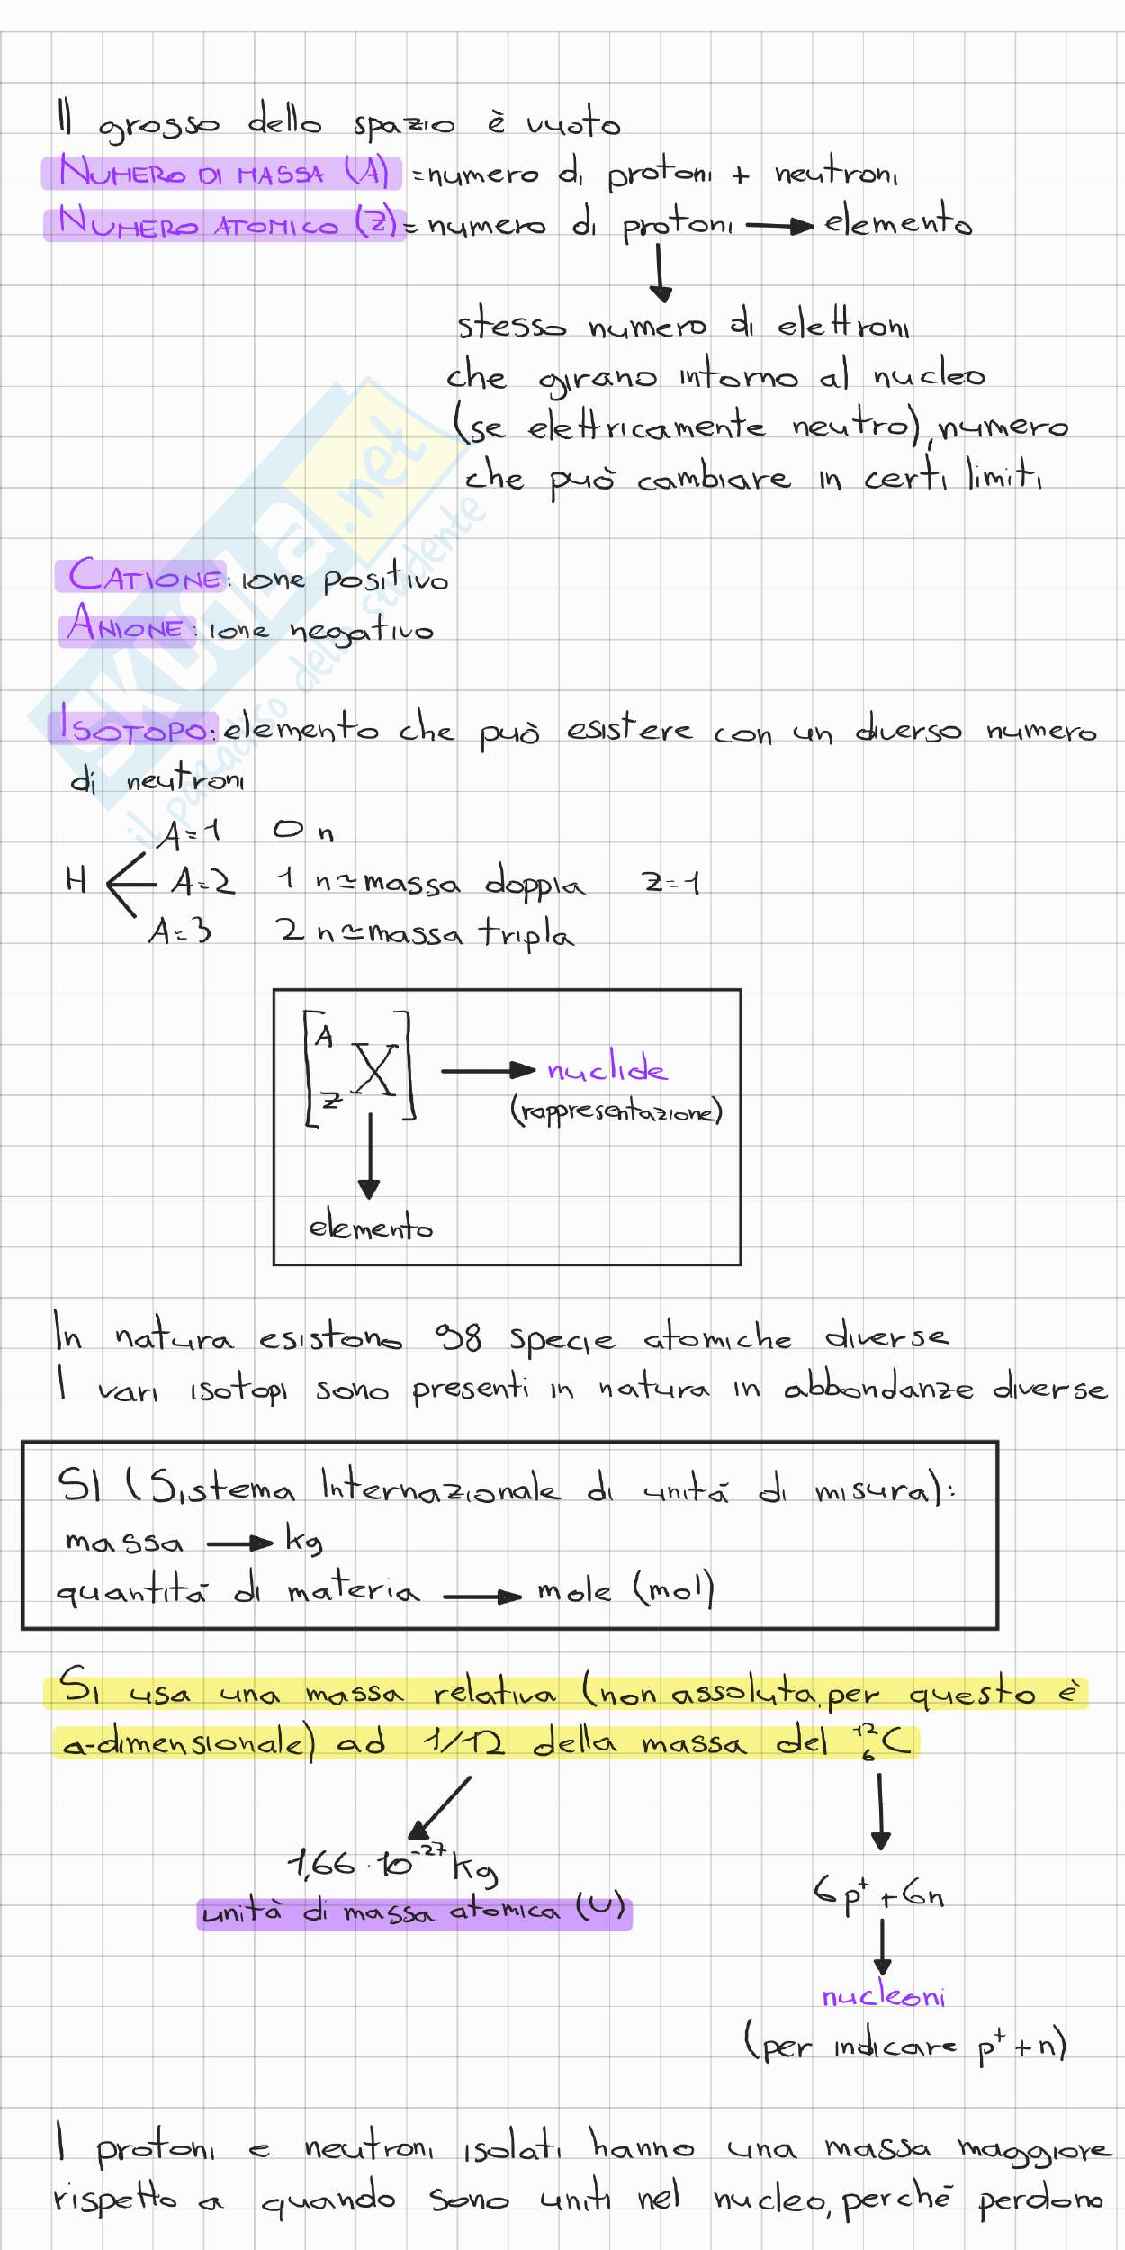 Il grosso dello spazio è vuoto
NUMERO DI MASSA (A) = numero di protoni + neutroni
NUMERO ATOMICO (Z) = numero di protoni → elemento
↓
stesso numero di elettroni
che girano intorno al nucleo
(se elettricamente neutro), numero
che può cambiare in certi limiti
CATIONE: ione positivo
ANIONE: ione negativo
ISOTOPO: elemento che può esistere con un diverso numero
di neutroni
A=1 0 n
H A=2 1 n ≃ massa doppia Z=1
A=3 2 n ≃ massa tripla
[A Z X] → nuclide
(rappresentazione)
↓
elemento
In natura esistono 98 specie atomiche diverse
I vari isotopi sono presenti in natura in abbondanze diverse
SI (Sistema Internazionale di unità di misura):
massa → kg
quantità di materia → mole (mol)
Si usa una massa relativa (non assoluta, per questo è
a-dimensionale) ad 1/12 della massa del ¹²₆C
1,66 · 10⁻²⁷ kg
unità di massa atomica (U)
6p⁺ + 6n
↓
nucleoni
(per indicare p⁺ + n)
I protoni e neutroni isolati hanno una massa maggiore
rispetto a quando sono uniti nel nucleo, perché perdono
skuola.net
il paradiso dello studente